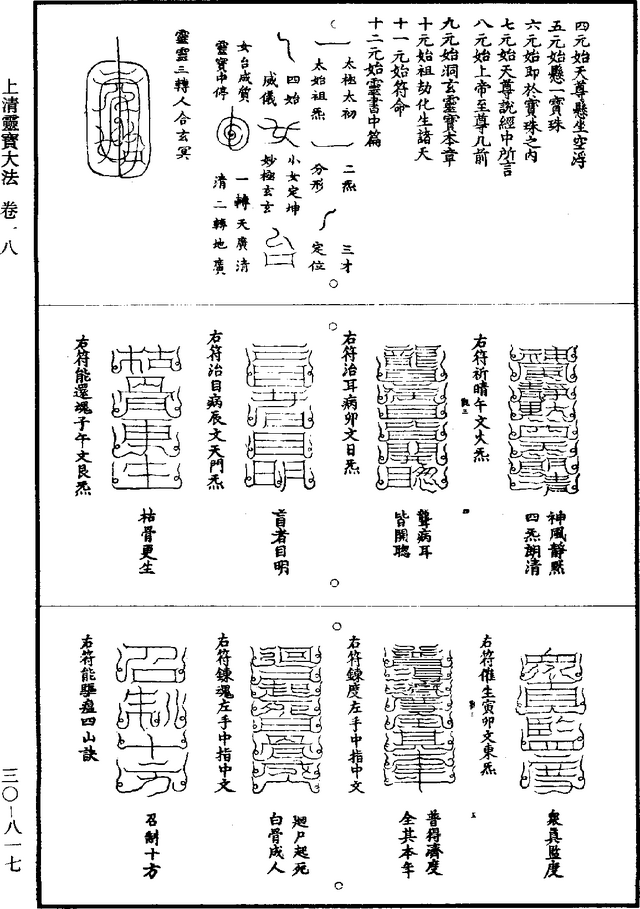 四元始天尊懸坐空浮
五元始懸一寶珠
六元始即於寶珠之內
七元始天尊說經中所言
八元始上帝至尊几前
九元始洞玄靈寶本章
十元始祖劫化生諸天
十一元始符命
十二元始靈書中篇
太極太初
二炁
三才
太始祖炁
分形
定位
四始
小女定坤
威儀
妙極玄玄
女台成質
一轉天廣清
靈寶中停
清二轉地廣
靈雲三轉人合玄冥
神風靜默
四炁朗清
右符祈晴午文火炁
聾病耳
皆開聰
右符治耳病卯文日炁
盲者目明
右符治目病辰文天門炁
枯骨更生
右符能還魂子午文艮炁
眾真監度
右符催生寅卯文東炁
普得濟度
全其本年
右符鍊度左手中指中文
迴尸起死
白骨成人
右符鍊魂左手中指中文
召制十方
右符能驅瘟四山訣
上清靈寶大法 卷一八
三〇-八一七